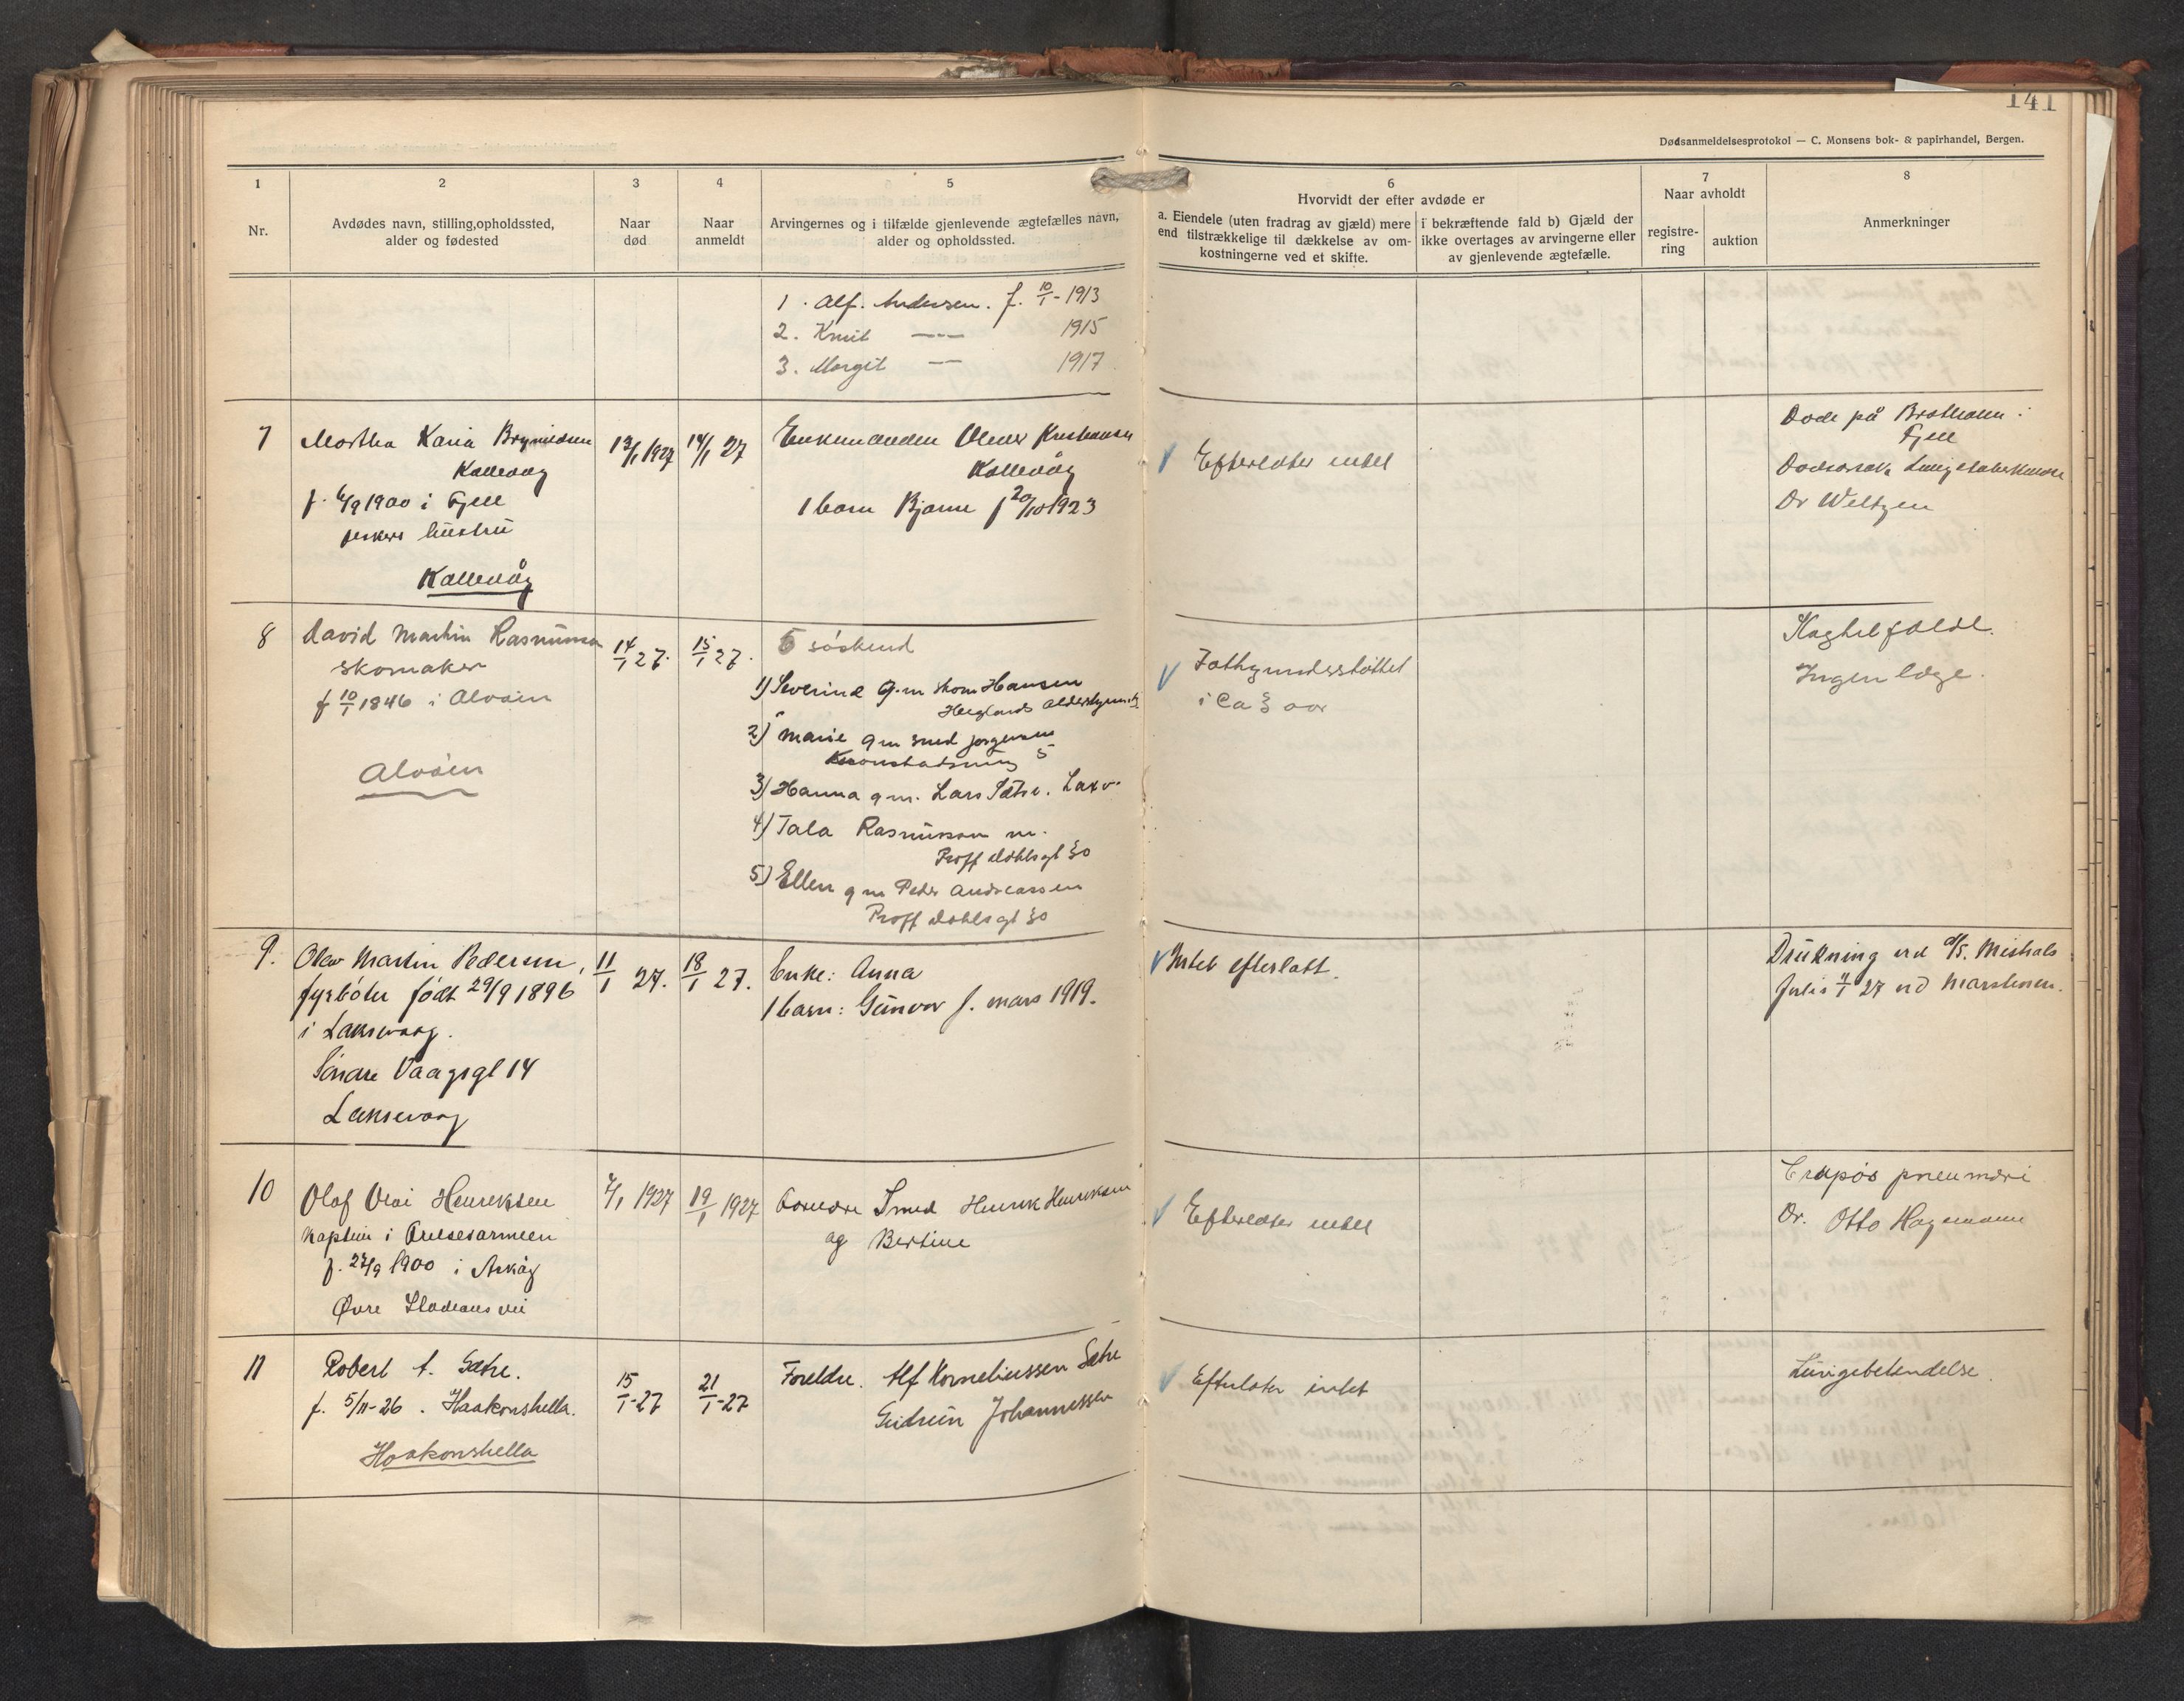 141
Dødsanmeldelsesprotokol — C. Monsens bok- & papirhandel, Bergen.
1
Nr.
2
Avdødes navn, stilling, opholdssted,
alder og fødested
3
Naar
død
4
Naar
anmeldt
5
Arvingernes og i tilfælde gjenlevende ægtefælles navn,
alder og opholdssted.
6
Hvorvidt der efter avdøde er
a. Eiendele (uten fradrag av gjæld) mere
end tilstrækkelige til dækkelse av om-
kostningerne ved et skifte.
i bekræftende fald b) Gjæld der
ikke overtages av arvingerne eller
av gjenlevende ægtefælle.
7
Naar avholdt
registre-
ring
auktion
8
Anmerkninger
1. Alf. Andersen. f. 10/1-1913
2. Knut — 1915
3. Margit — 1917
7
Martha Karia Brynildsen
Kallevåg
f. 6/9 1900 i Fjell
fiskers hustru
Kallevåg
13/1 1927
14/1 27
Enkemanden Olmer Kristiansen
Kallevåg
1 barn Bjarne f 20/10 1923
Efterlater intet
Døde på Bratholm i
Fjell
Dødsårsak Lungetuberkulose
Dr Weltzen
8
David Martin Rasmussen
skomaker
f 10/1 1846 i Alvøen
Alvøen
14/1 27.
15/1 27.
5 søskend
1) Severine g.m skom Hansen
2) Marie g m smed Jørgensen
5
3) Hanna g m. Lars Sætre. Laxv.
4) Tala Rasmussen m.
Proff Dahlsgt 30
5) Ellen g m Peder Andreassen
Proff Dahlsgt 30
Fattigunderstøttet
i Ca 3 aar
Slagtilfælde.
Ingen læge.
9.
Olav Martin Pedersen,
fyrbøter født 29/9 1896
i Laksevaag.
Søndre Vaagsgt 14
Laksevaag
11/1 27.
18/1 27.
Enke: Anna
1 barn: Gunvor f. mars 1919.
Intet efterlatt.
Drukning ved d/s. Mistrals
forlis 11/1 27 ved Marstenen.
10
Olaf Olai Henriksen
Kaptein i Frelsesarmeen
f. 27/9 1900 i Askøy
Øvre
7/1 1927
19/1 1927
Forældre Smed Henrik Henriksen
og Bertine
Efterlater intet
Crupøs pneumoni
Dr. Otto Hagemann
11
Robert A. Sætre.
f. 5/11-26. Haakonshella.
Haakonshella
15/1-27
21/1-27
Foreldre. Alf Korneliussen Sætre
Gudrun Johannessen
Efterlater intet
Lungebetendelse.